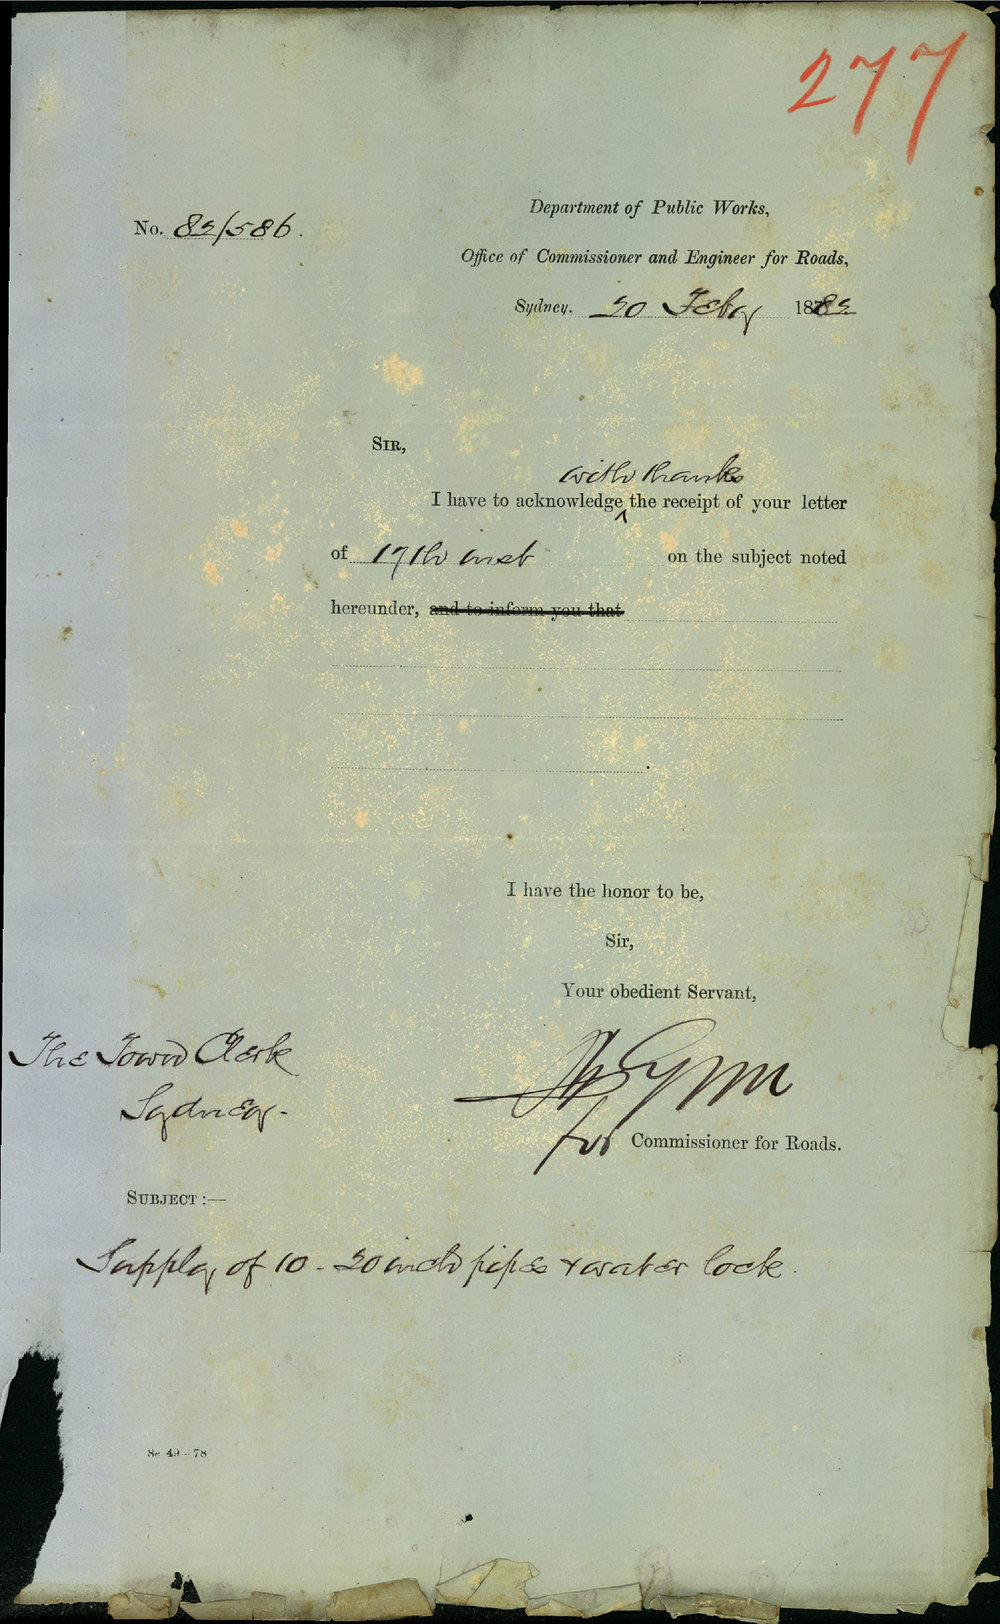 277
No. 82/586.
Department of Public Works,
Office of Commissioner and Engineer for Roads,
Sydney, 20 Feby 1882
SIR,
with thanks
I have to acknowledge ^ the receipt of your letter
of 17th inst on the subject noted
hereunder, and to inform you that
I have the honor to be,
Sir,
Your obedient Servant,
The Town Clerk
Sydney-
for Commissioner for Roads.
SUBJECT :—
Supply of 10 - 20 inch pipes & water lock.
49 - 78